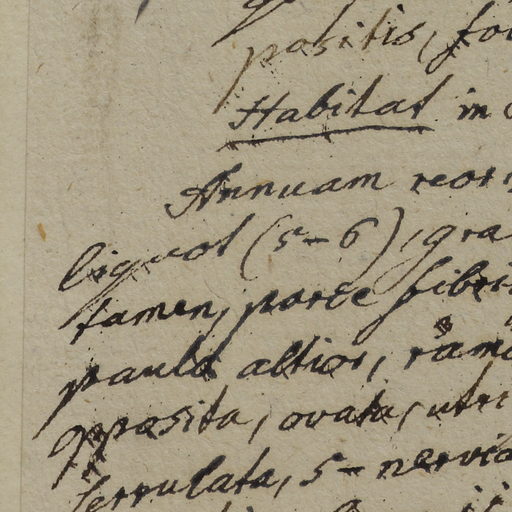 positis, fo
Habitat in
Annuam reor
liquot (5-6), gra
tamen, parce fibri
paulo altior, ram
opposita, ovata, utri
serrulata, 5-nervi